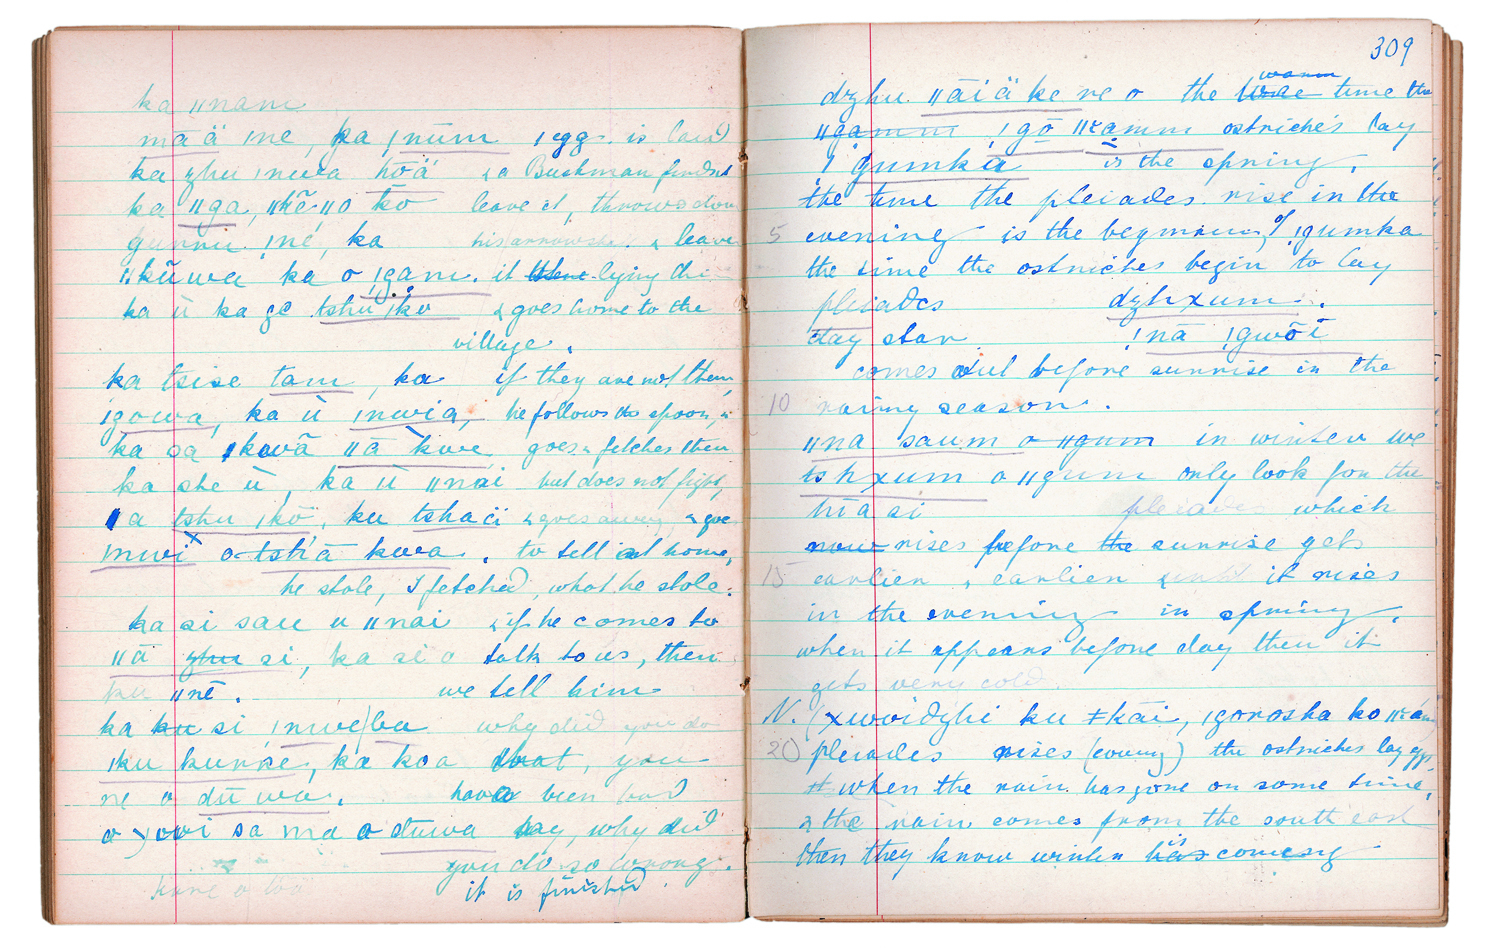 ka ǁnam
ma ä ıne, ka ǀnūm ıggs. is laid
ka zhu ınwa hōä & a Bushman finds it
ka ǁga, ǁkē ǁo kō leave it, throws down
gunnu. ıné, ka his arrows &c. & leaves
ǁkũwa ka o ǀgam. it lying there
ka ù ka ge tshù ǀko & goes home to the
village.
ka tsise tam, ka if they are not there,
ızowa, ka ù ınwia, he follows the spoor, &
ka sa ǀkavā ǁā kwe goes & fetches them
ka she ù, ka ù ǁnäi but does not fight,
ıa tshu ǀkō, ka tshaä & goes away, & goes
mwi o tshā kwa. to tell at home,
he stole, I fetched, what he stole.
ka si sau u ǁnai & if he comes to
ǁā zhu si, ka si o talk to us, then
ku ǁnē. we tell him
ka ku si, ǀnwe)ba why did you do
ıku kunse, ka koa that, you
ne o dū wa. have been bad
o yowi sa ma o duwa say, why did
you do so wrong.
it is finished.
309
dzhu. ǁāi ä ke ne o the warm time the
ǁgamm ǀgō ǁkamm ostriches lay
ǀ gumka is the spring,
the time the pleiades rise in the
5 evening is the beginning of ǀgumka
the time the ostriches begin to lay
pleiades dzhxum.
day star ǃnā ǃgwōī
comes out before sunrise in the
10 rainy season.
ǁna saum o ǁgum in winter we
tshxum o ǁgum only look for the
hiasi pleiades which
now rises before the sunrise gets
15 earlier & earlier until it rises
in the evening in spring,
when it appears before day then it
gets very cold.
N. (xwoidzhi ku ǂkāi, ǀgorosha ko
20 pleiades rises (coming) the ostriches lay eggs
when the rain has gone on some time,
& the rain comes from the south east
then they know winter is coming